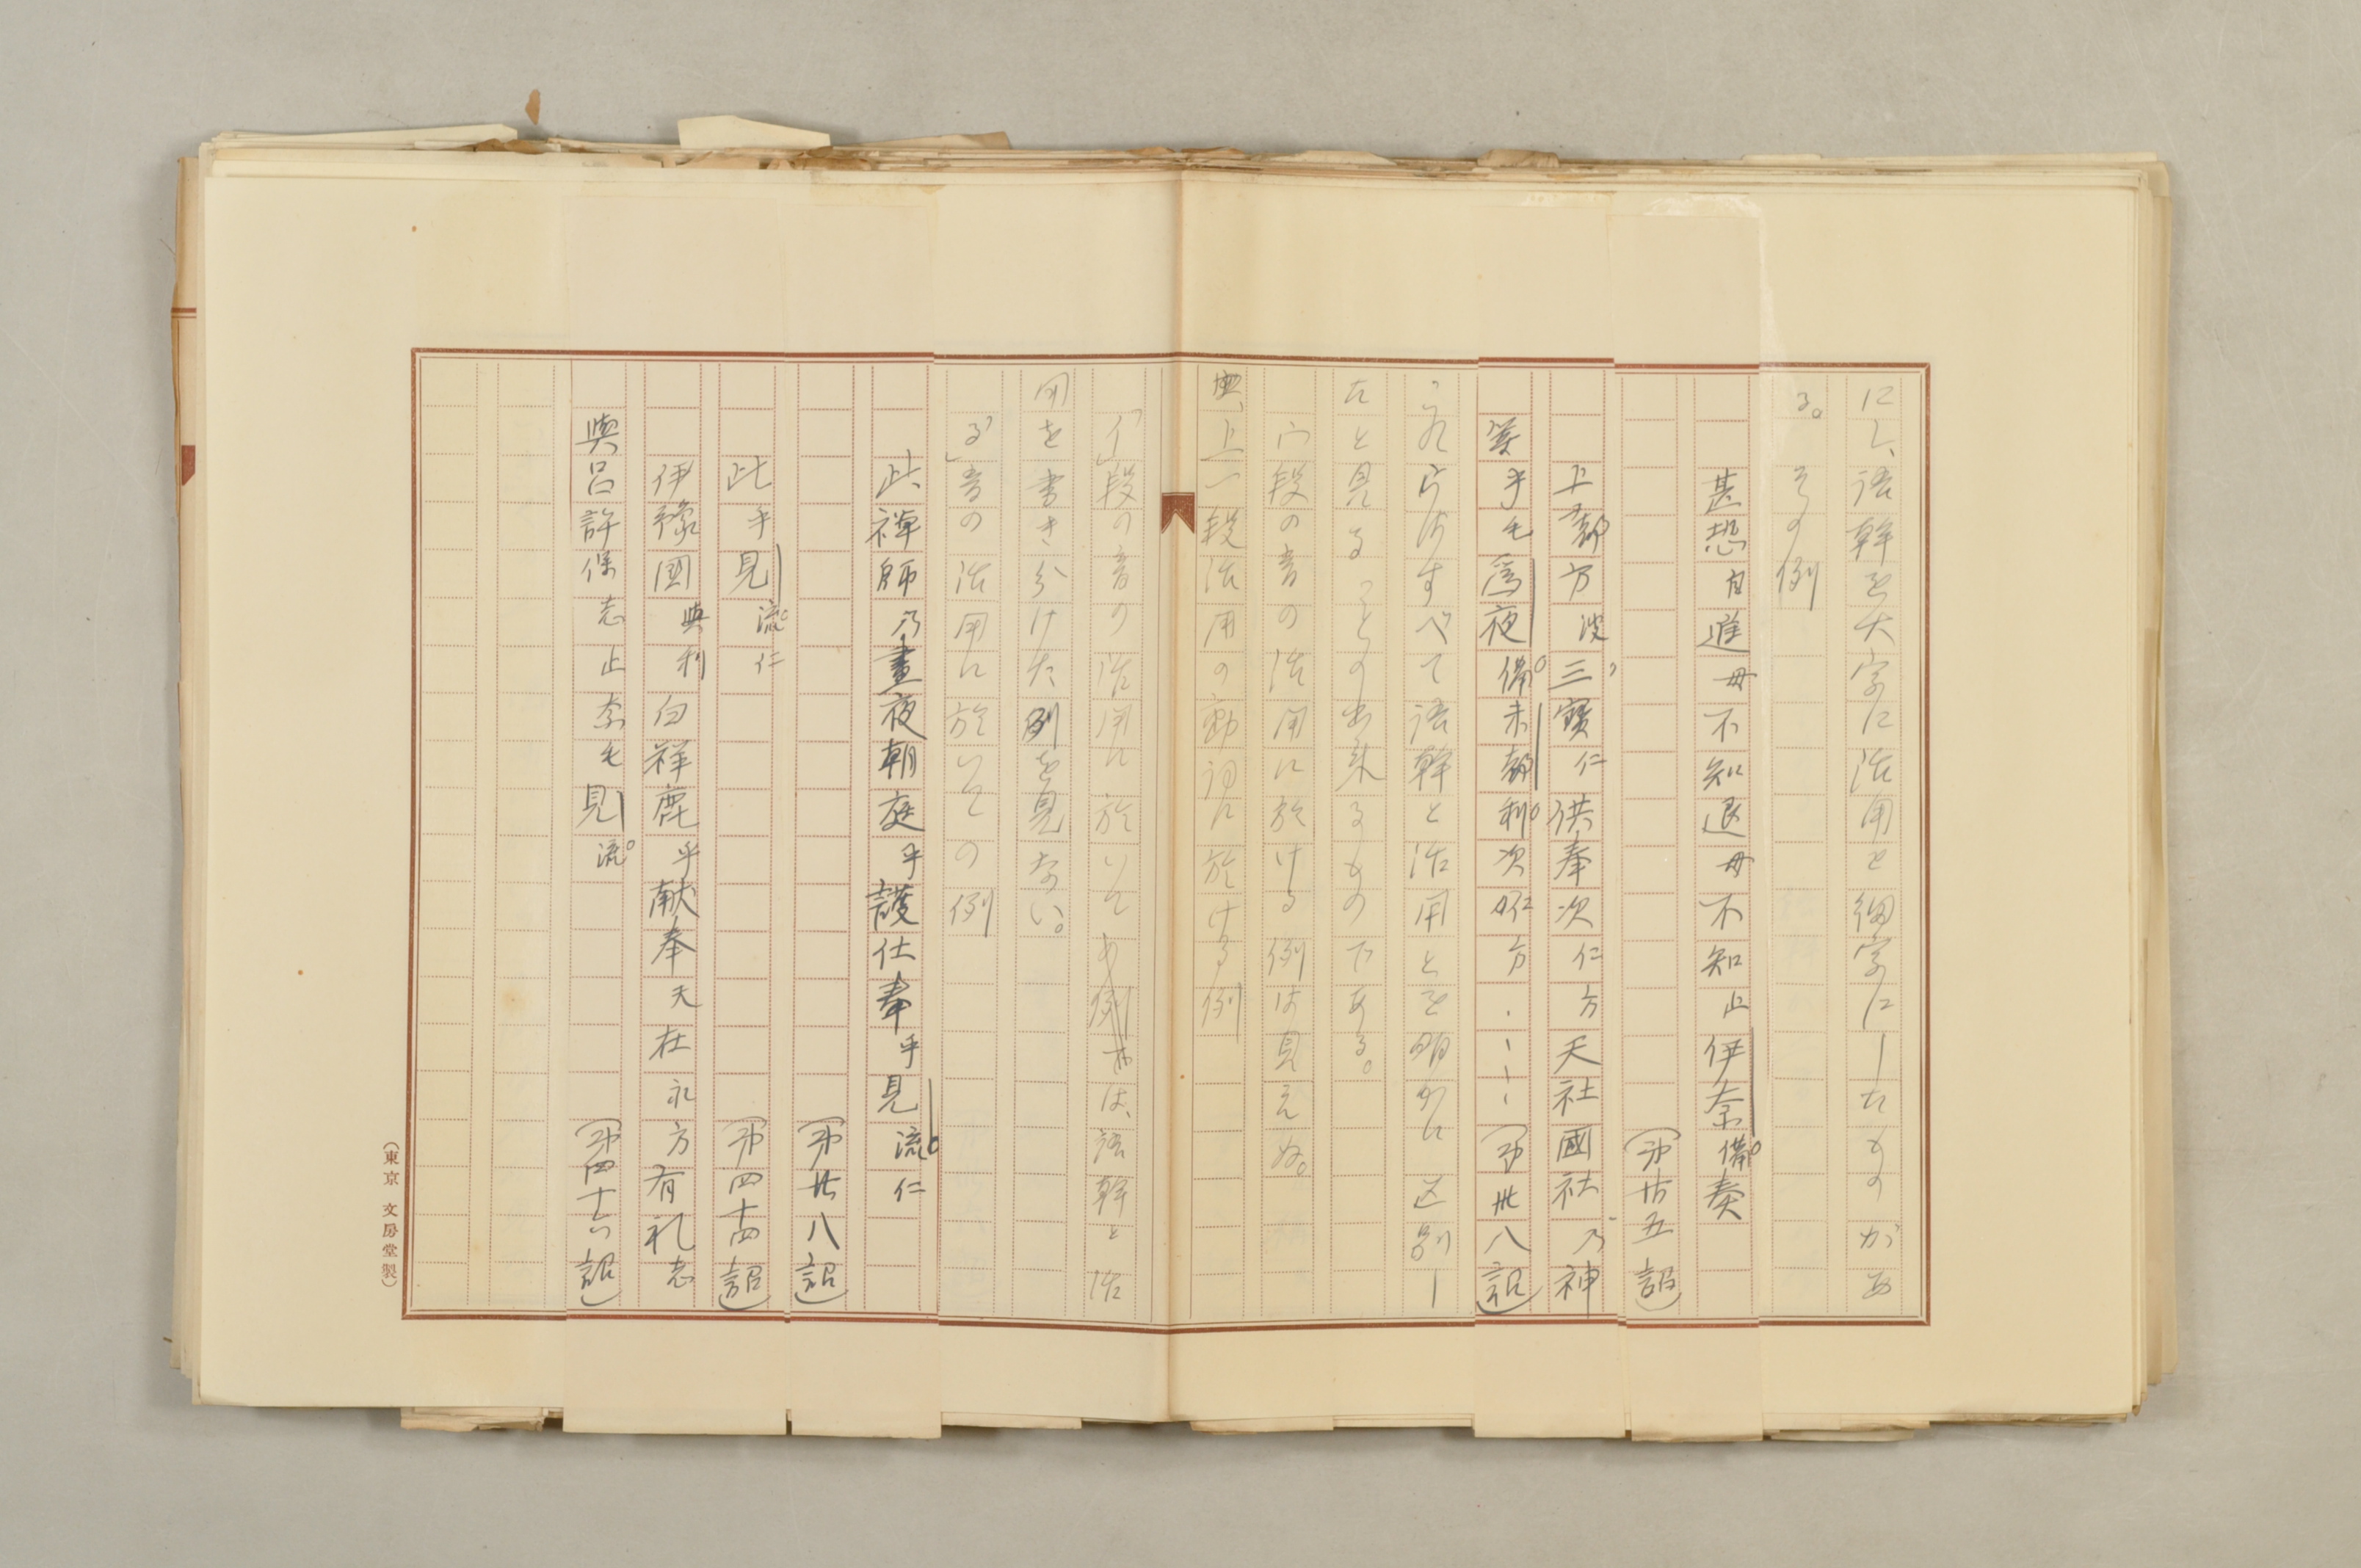 に、語幹を大字に活用を細字にしたものがあ
る。その例
甚恐自進毋不知退毋不知止伊奈備奏
（第廿五詔）
上都方波三寶仁供奉次仁方天社國社乃神
等乎毛為夜備末都利次仁方・・・・（第卅八詔）
これらはすべて語幹と活用とを明かに区別し
たと見ることの出来るものである。
ウ段の音の活用に於ける例は見えぬ。
典、上一段活用の動詞に於ける例
「イ」段の音の活用に於いては、語幹と活
用を書き分けた例を見ない。
「る」音の活用に於いての例
此禅師乃晝夜朝庭乎護仕奉乎見流仁
（第卅八詔）
此乎見流仁（第四十四詔）
伊豫國與利白祥鹿乎献奉天在礼方有礼志
與呂許保志止奈毛見流（第四十六詔）
（東京 文房堂製）